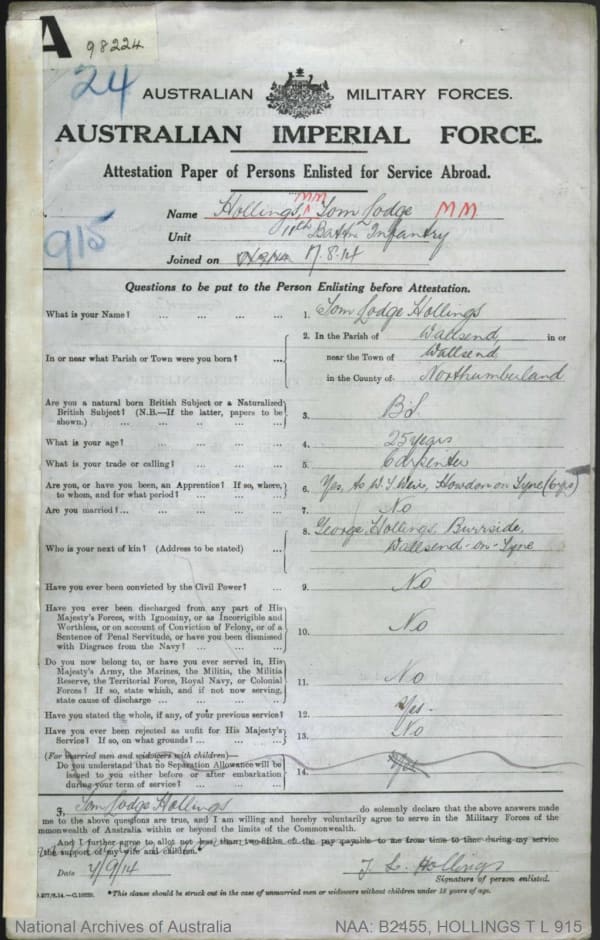 A 98224
24
AUSTRALIAN MILITARY FORCES.
AUSTRALIAN IMPERIAL FORCE.
Attestation Paper of Persons Enlisted for Service Abroad.
MM
Name Hollings, Tom Lodge MM
915
Unit 11th Battn Infantry
Joined on 17.8.14
Questions to be put to the Person Enlisting before Attestation.
What is your Name? ... ... ... ... 1. Tom Lodge Hollings
In or near what Parish or Town were you born? ... 2. In the Parish of Wallsend, in or
near the Town of Wallsend
in the County of Northumberland
Are you a natural born British Subject or a Naturalized
British Subject? (N.B.—If the latter, papers to be
shown.) ... ... ... ... 3. B.S.
What is your age? ... ... ... ... 4. 25 years
What is your trade or calling? ... ... ... 5. Carpenter
Are you, or have you been, an Apprentice? If so, where,
to whom, and for what period? ... ... ... 6. Yes, to W. S. Weir, Howdon on Tyne (6 yrs)
Are you married? ... ... ... ... ... 7. No
Who is your next of kin? (Address to be stated) ... 8. George Hollings, Burnside,
Wallsend-on-Tyne
Have you ever been convicted by the Civil Power? ... 9. No
Have you ever been discharged from any part of His
Majesty's Forces, with Ignominy, or as Incorrigible and
Worthless, or on account of Conviction of Felony, or of a
Sentence of Penal Servitude, or have you been dismissed
with Disgrace from the Navy? ... ... ... 10. No
Do you now belong to, or have you ever served in, His
Majesty's Army, the Marines, the Militia, the Militia
Reserve, the Territorial Force, Royal Navy, or Colonial
Forces? If so, state which, and if not now serving,
state cause of discharge ... ... ... ... 11. No
Have you stated the whole, if any, of your previous service? 12. Yes.
Have you ever been rejected as unfit for His Majesty's
Service? If so, on what grounds? ... ... ... 13. No
(For married men and widowers with children)—
Do you understand that no Separation Allowance will be
issued to you either before or after embarkation
during your term of service? ... ... ... 14.
I, Tom Lodge Hollings do solemnly declare that the above answers made
me to the above questions are true, and I am willing and hereby voluntarily agree to serve in the Military Forces of the
mmonwealth of Australia within or beyond the limits of the Commonwealth.
And I further agree to allot not less than two-fifths of the pay payable to me from time to time during my service
the support of my wife and children.*
Date 4/9/14 T. L. Hollings
Signature of person enlisted.
*This clause should be struck out in the case of unmarried men or widowers without children under 18 years of age.
National Archives of Australia NAA: B2455, HOLLINGS T L 915